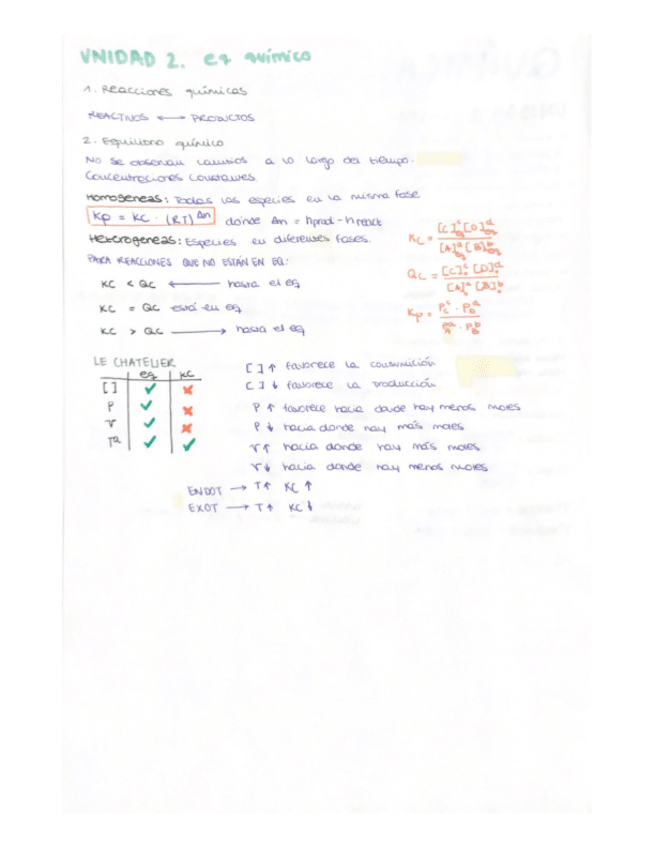 UNIDAD 2. eq químico
1. Reacciones químicas
REACTIVOS ⟷ PRODUCTOS
2. Equilibrio químico
No se observan cambios a lo largo del tiempo.
Concentraciones constantes.
Homogeneas: Todas las especies en la misma fase
Kp = Kc · (RT)^Δn donde Δn = nprod - nreact
Heterogeneas: Especies en diferentes fases.
Kc = [C]^c_eq [D]^d_eq / [A]^a_eq [B]^b_eq
PARA REACCIONES QUE NO ESTÁN EN EQ:
Qc = [C]^c_o [D]^d_o / [A]^a_o [B]^b_o
KC < QC ⟵ hacia el eq
KC = QC está en eq
Kp = P_C^c · P_D^d / P_A^a · P_B^b
KC > QC ⟶ hacia el eq
LE CHATELIER
eq KC
[ ] ✓ ✗
P ✓ ✗
V ✓ ✗
Tª ✓ ✓
[ ] ↑ favorece la consumición
[ ] ↓ favorece la producción
P ↑ favorece hacia donde hay menos moles
P ↓ hacia donde hay más moles
V ↑ hacia donde hay más moles
V ↓ hacia donde hay menos moles
ENDOT → T ↑ KC ↑
EXOT → T ↑ KC ↓